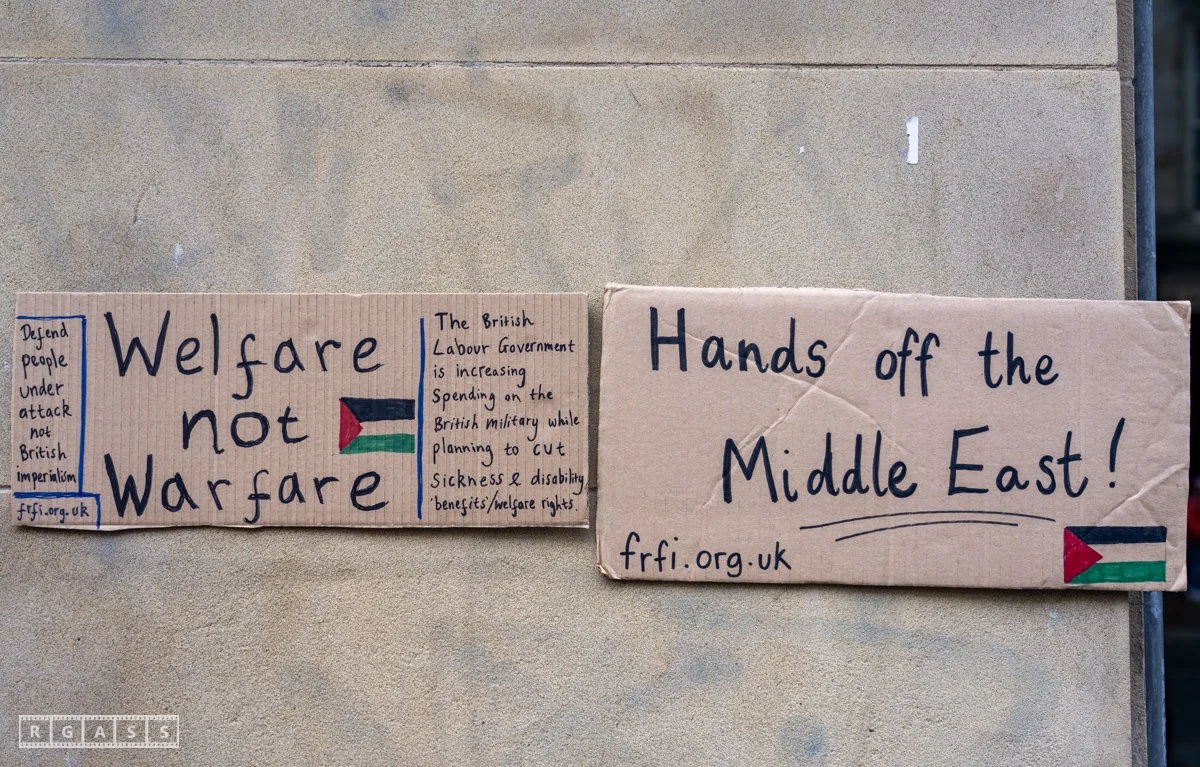 Defend
people
under
attack
not
British
imperialism
frfi.org.uk
Welfare
not
Warfare
The British
Labour Government
is increasing
Spending on the
British military while
planning to cut
sickness & disability
benefits/welfare rights.
Hands off the
Middle East!
frfi.org.uk
RGASS